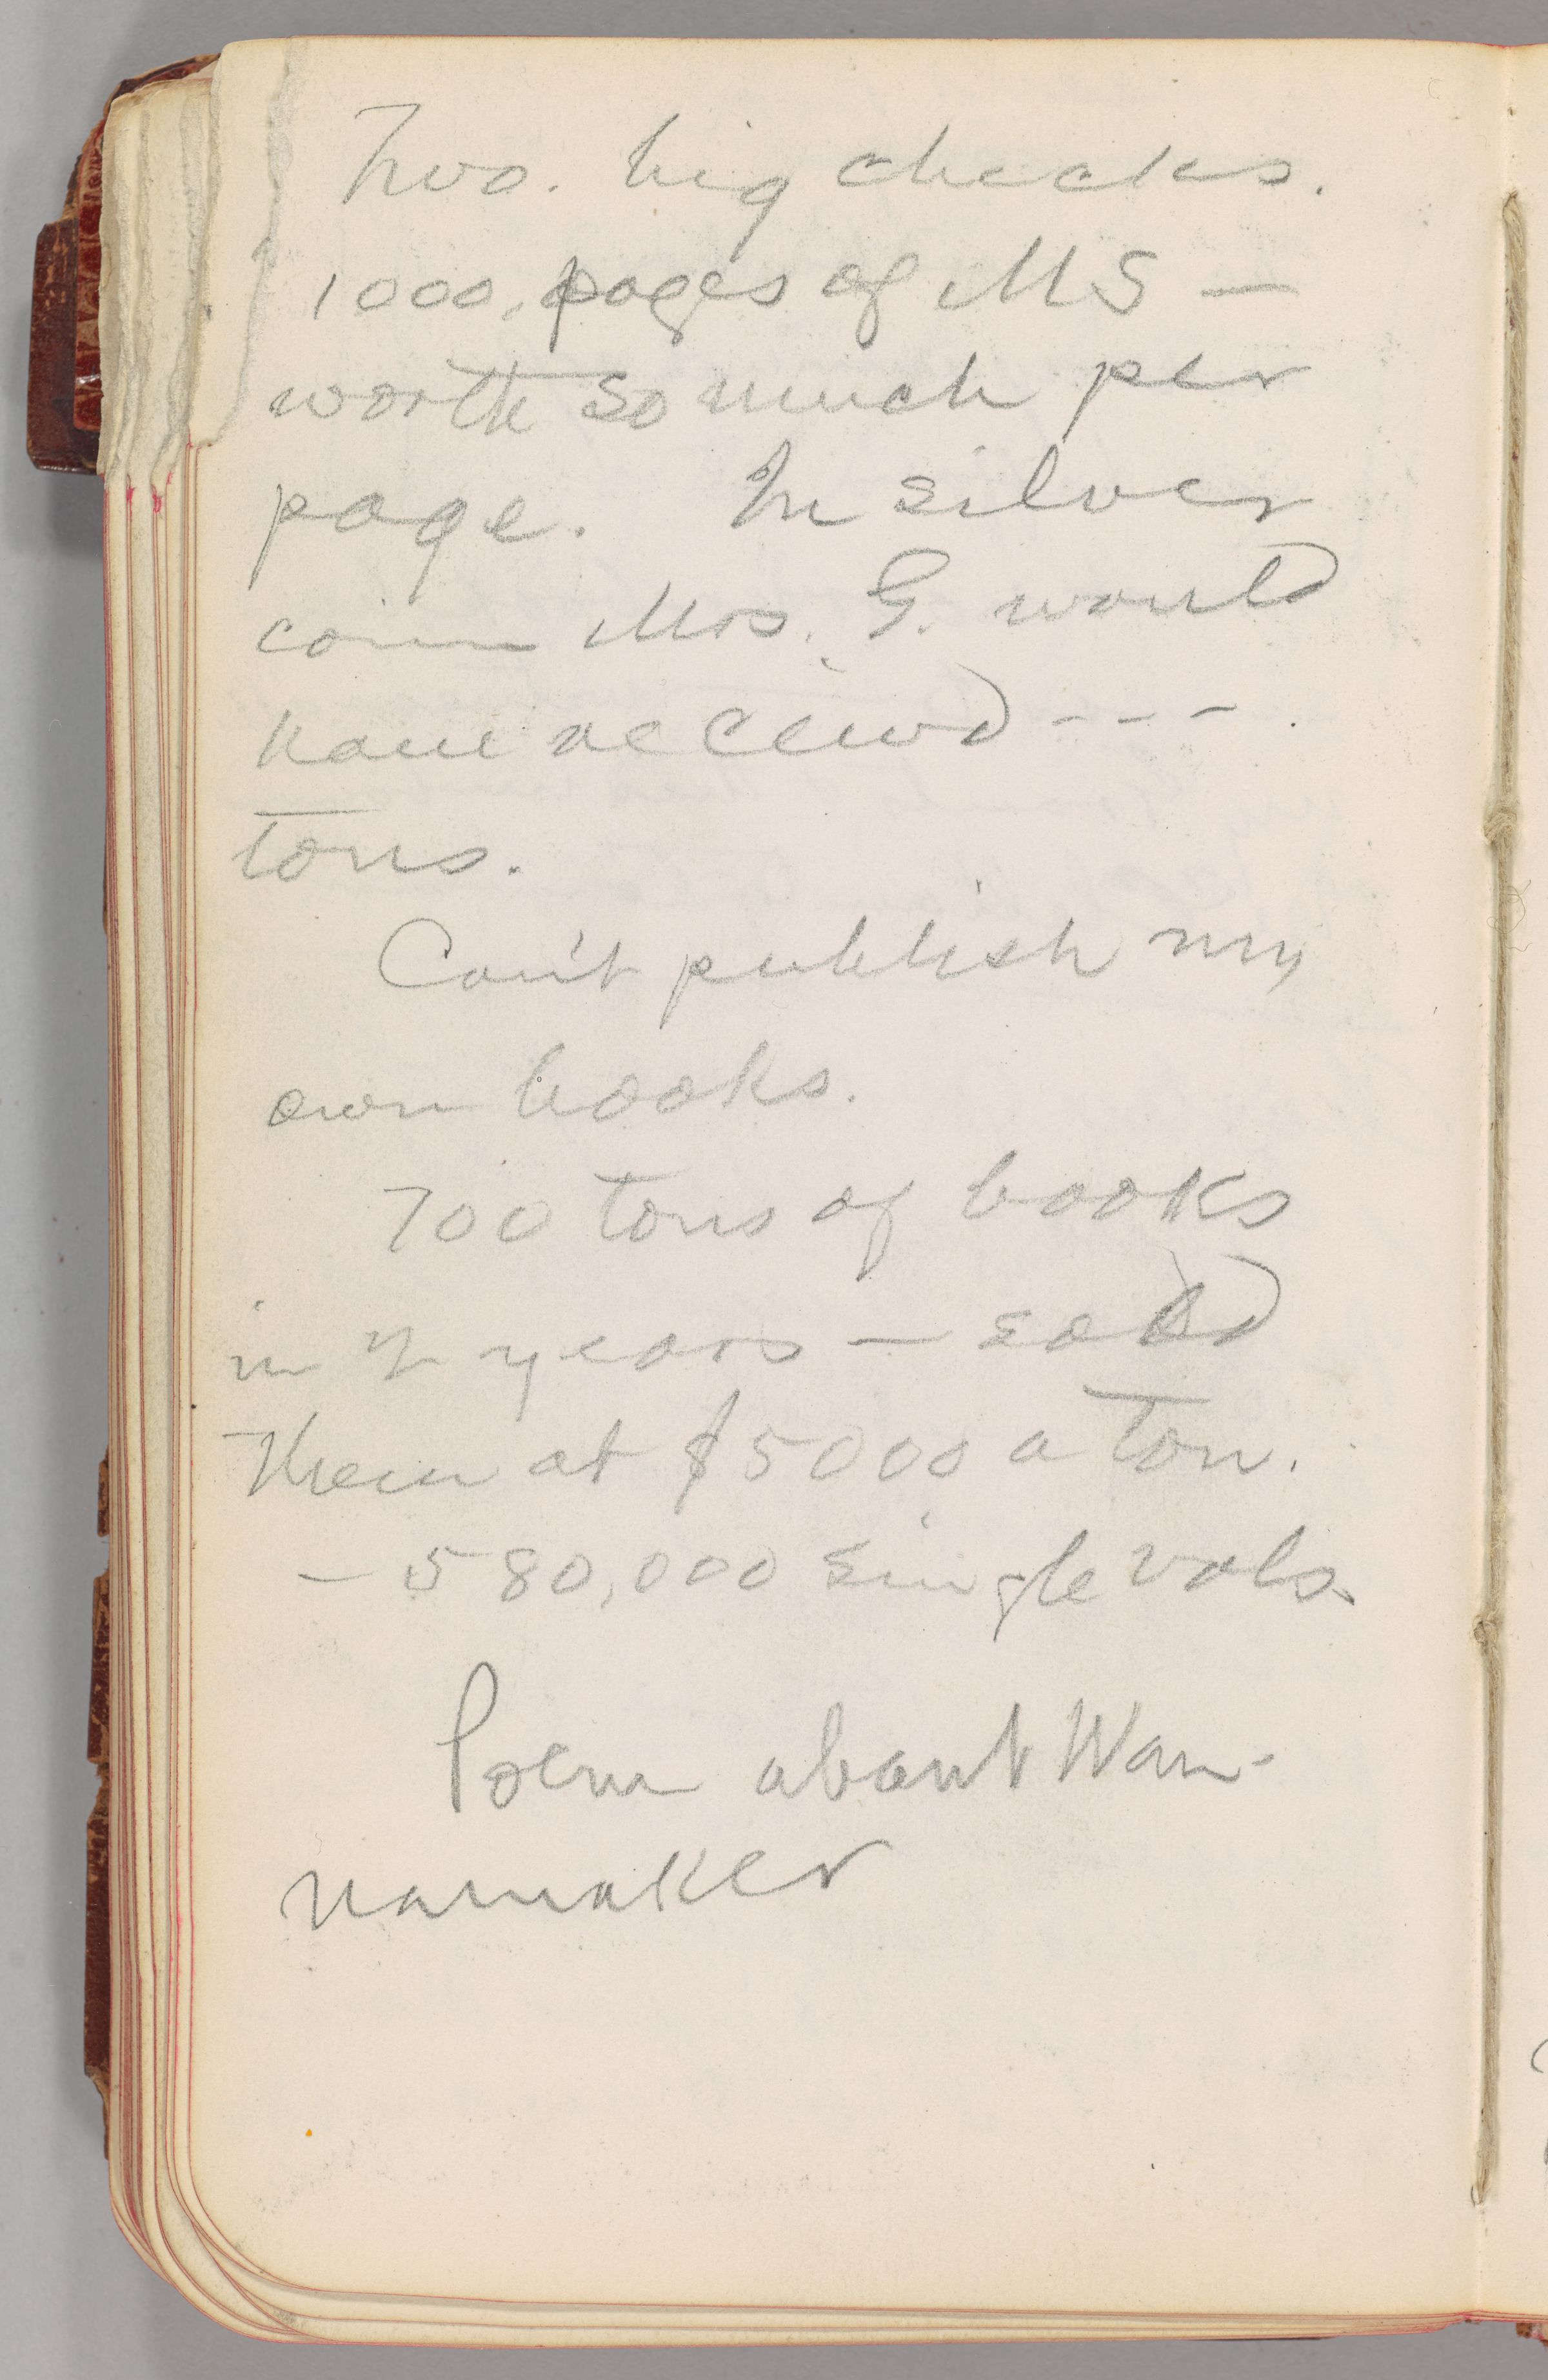 Two. big checks.
1000. pages of MS —
worth so much per
page. In silver
coin Mrs. G. would
have received - - -
tons.
Can't publish my
own books.
700 tons of books
in years — sold
them at $5000 a ton.
— 580,000 single vols.
Poem about Wan-
namaker